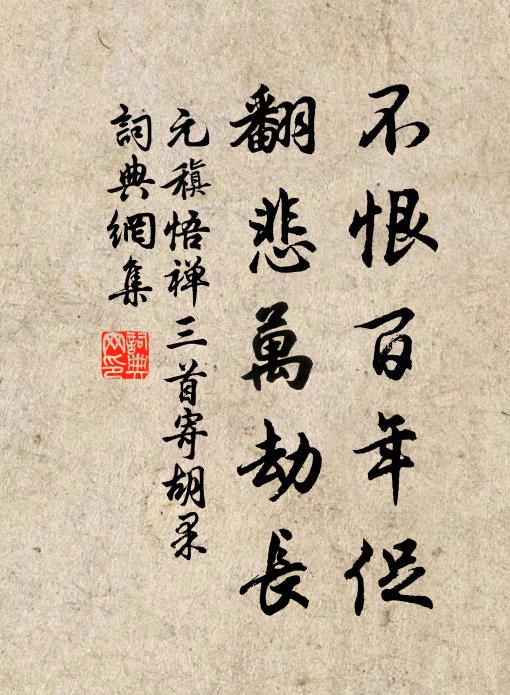 不恨百年促
翻悲萬劫長
元稹悟禅三首寄胡果
詞典網集
詞典
网印